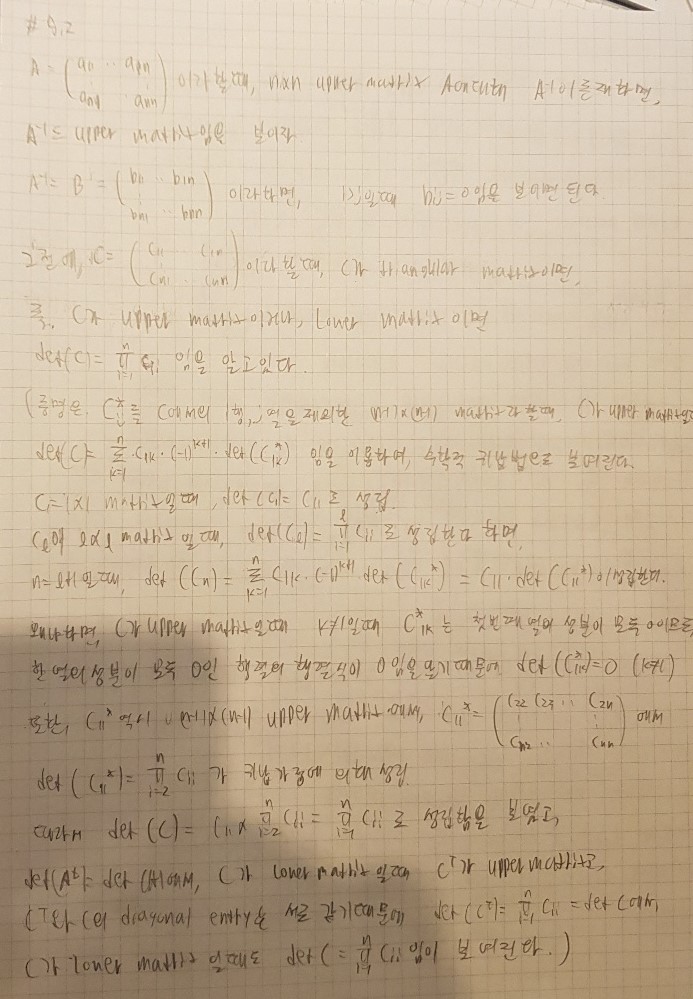 # 9.2
A = (a11 ·· a1n / an1 ann) 이라 할때, n×n upper matrix A에 대해 A-1이 존재하면,
A-1는 upper matrix임을 보이자
A-1 = B = (b11 ·· b1n / bn1 ·· bnn) 이라하면, 일때 = 0임을 보이면 된다.
그전에, C = (c11 ·· c1n / cn1 ·· cnn) 이라 할때, C가 triangular matrix이면,
즉, C가 upper matrix이거나, Lower matrix 이면
det(C) = ∏(i=1→n) cii 임을 알고있다.
(증명은 C*ij를 C에서 i행, j열을 제외한 (n-1)×(n-1) matrix라 할때, C가 upper matrix일때
det(C) = Σ(k=1→n) C1k·(-1)^(k+1)·det(C*1k) 임을 이용하여, 수학적 귀납법으로 보여진다.
C=1×1 matrix일때, det(C) = C11로 성립.
Cl이 l×l matrix 일때, det(Cl) = ∏(i=1→l) Cii 로 성립한다 하면,
n=l+1일때, det(Cn) = Σ(k=1→n) C1k·(-1)^(k+1) det(C1k*) = C11·det(C11*)이 성립한다.
왜냐하면, C가 upper matrix일때 k≠1일때 C*1k는 첫번째 열의 성분이 모두 0이므로,
한 열의 성분이 모두 0인 행렬의 행렬식이 0임을 알기때문에 det(C*1k)=0 (k≠1)
또한, C11* 역시 (n-1)×(n-1) upper matrix 이며, C11* = (C22 C23 ·· C2n / Cn2 ·· Cnn) 에서
det(C11*) = ∏(i=2→n) Cii 가 귀납가정에 의해 성립.
따라서 det(C) = C11 × ∏(i=2→n) Cii = ∏(i=1→n) Cii 로 성립함을 보였고,
det(At) = det(A)에서, C가 lower matrix 일때 CT가 upper matrix고,
CT와 C의 diagonal entry는 서로 같기때문에 det(CT) = ∏(i=1→n) Cii = det C에서,
C가 lower matrix 일때도 det C = ∏(i=1→n) Cii 임이 보여진다.)